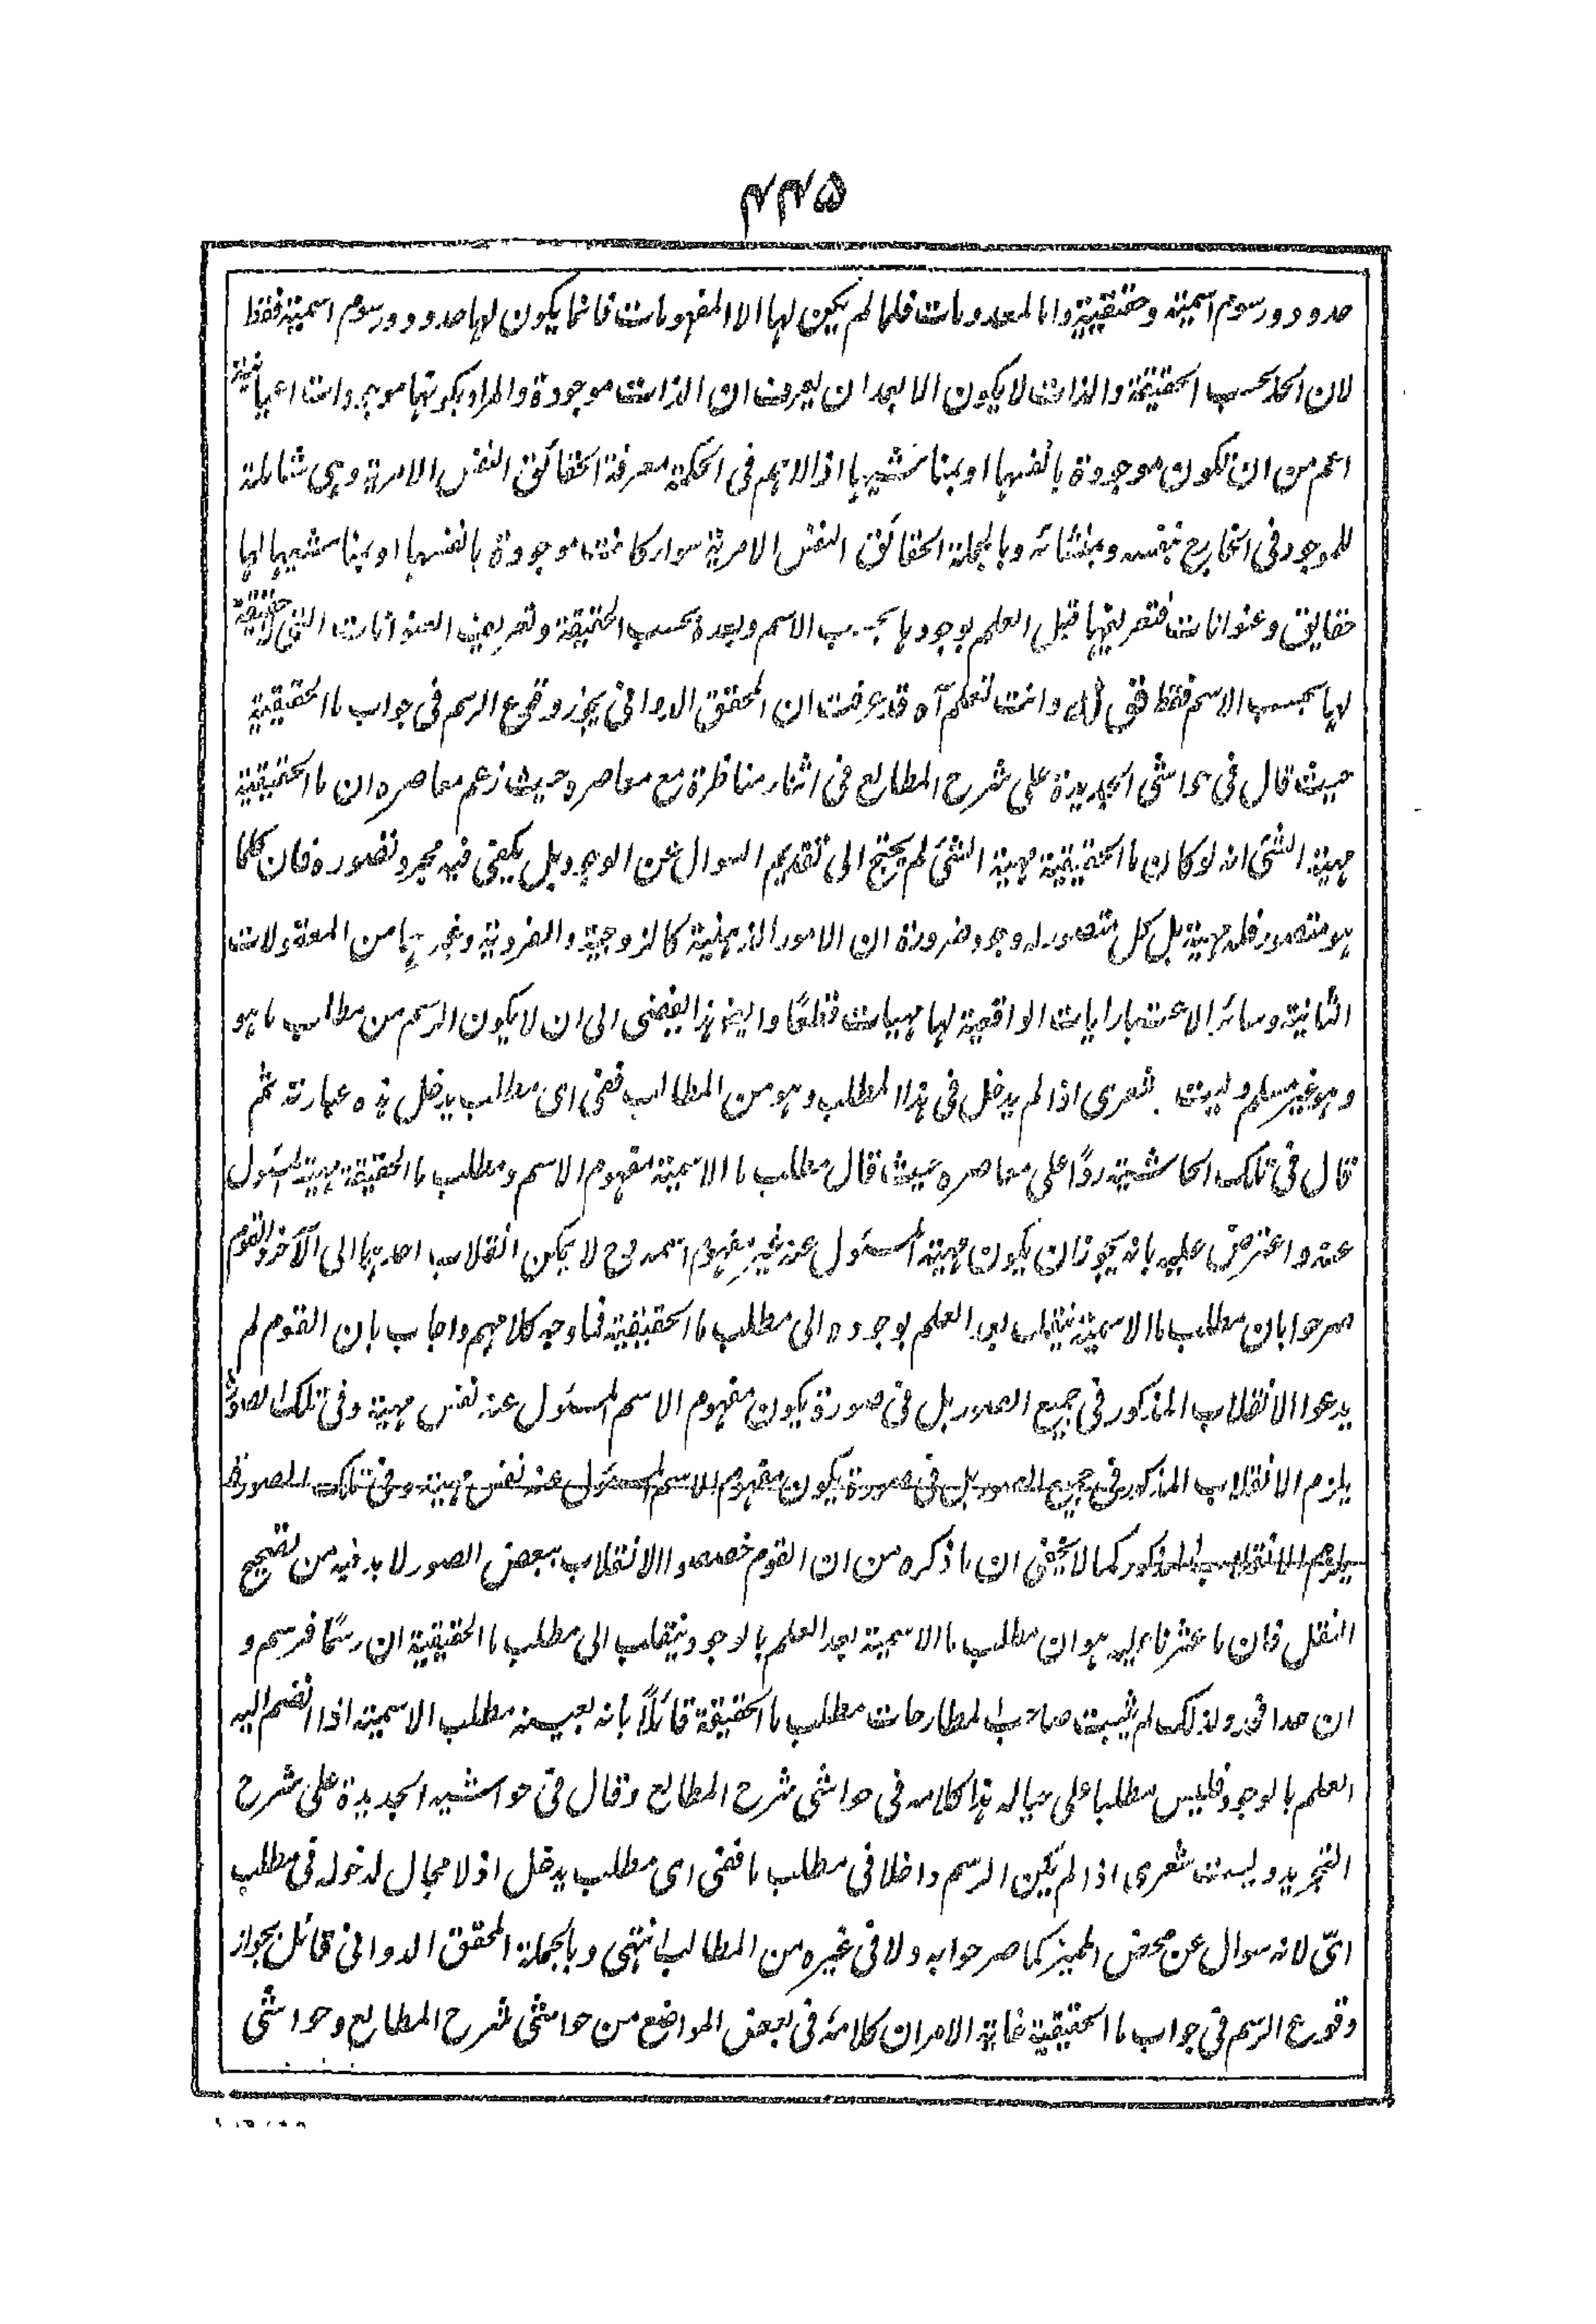 ۴۴۵
حدود ورسوم اسمية وحقيقية واما المعدومات فلما لم يكن لها الا المفهومات فانما يكون لها حدود ورسوم اسمية فقط
لان الحد بحسب الحقيقة والذات لا يكون الا بعد ان يعرف ان الذات موجودة والمراد بكونها موجودات اعيانية
اعم من ان تكون موجودة بانفسها او بمناشيها اذ الاهم فى الحكمة معرفة الحقائق النفس الامرية وهى شاملة
للموجود فى الخارج بنفسه وبمنشائه وبالجملة الحقائق النفس الامرية سواء كانت موجودة بانفسها او بمناشيها لها
حقايق وعنوانات فتعريفها قبل العلم بوجودها بحسب الاسم وبعده بحسب الحقيقة وتعريف العنوانات التى لا حقيقة
لها بحسب الاسم فقط قوله وانت تعلم آه قد عرفت ان المحقق الدوانى يجوز وقوع الرسم فى جواب ما الحقيقية
حيث قال فى حواشى الجديدة على شرح المطالع فى اثناء مناظرة مع معاصره حيث زعم معاصره ان ما الحقيقية
مهية الشئ انه لو كان ما الحقيقية مهية الشئ لم يحتج الى تقديم السوال عن الوجود بل يكفى فيه مجرد تصوره فان كلما
هو متصور فله مهية بل كل متصور له وجود ضرورة ان الامور الذهنية كالزوجية والفردية وغيرها من المعقولات
الثانية وسائر الاعتباريات الواقعية لها مهيات قطعًا وايضا هذا يفضى الى ان لا يكون الرسم من مطالب ما هو
وهو غير مسلم وليت شعرى اذا لم يدخل فى هذا المطلب وهو من المطالب ففى اى مطلب يدخل هذه عبارته ثم
قال فى تلك الحاشية ردًا على معاصره حيث قال مطلب ما الاسمية مفهوم الاسم ومطلب ما الحقيقة مهية المسئول
عنه واعترض عليه بانه يجوز ان يكون مهية المسئول عنه غير مفهوم اسمه وح لا يمكن انقلاب احدهما الى الآخر والقوم
صرحوا بان مطلب ما الاسمية ينقلب بعد العلم بوجوده الى مطلب ما الحقيقية فما وجه كلامهم واجاب بان القوم لم
يدعوا الانقلاب المذكور فى جميع الصور بل فى صورة يكون مفهوم الاسم المسئول عنه نفس مهية وفى تلك الصورة
يلزم الانقلاب المذكور فى جميع الصور بل فى صورة يكون مفهوم الاسم المسئول عنه نفس مهية وفى تلك الصورة
يلزم الانقلاب المذكور كما لا يخفى ان ما ذكره من ان القوم خصصوا الانقلاب ببعض الصور لا بد فيه من تصحيح
النقل فان ما عثرنا عليه هو ان مطلب ما الاسمية بعد العلم بالوجود ينقلب الى مطلب ما الحقيقية ان رسمًا فرسم و
ان حدا فحد ولذلك لم يثبت صاحب المطارحات مطلب ما الحقيقة قائلًا بانه بعينه مطلب الاسمية اذا انضم اليه
العلم بالوجود فليس مطلبا على حياله هذا كلامه فى حواشى شرح المطالع وقال فى حواشيه الجديدة على شرح
التجريد وليت شعرى اذا لم يكن الرسم داخلا فى مطلب ما ففى اى مطلب يدخل اذ لا مجال لدخوله فى مطلب
اىّ لانه سوال عن محض المميز كما صرحوا به ولا فى غيره من المطالب انتهى وبالجملة المحقق الدوانى قائل بجواز
وقوع الرسم فى جواب ما الحقيقية غاية الامر ان كلامه فى بعض المواضع من حواشى شرح المطالع وحواشى